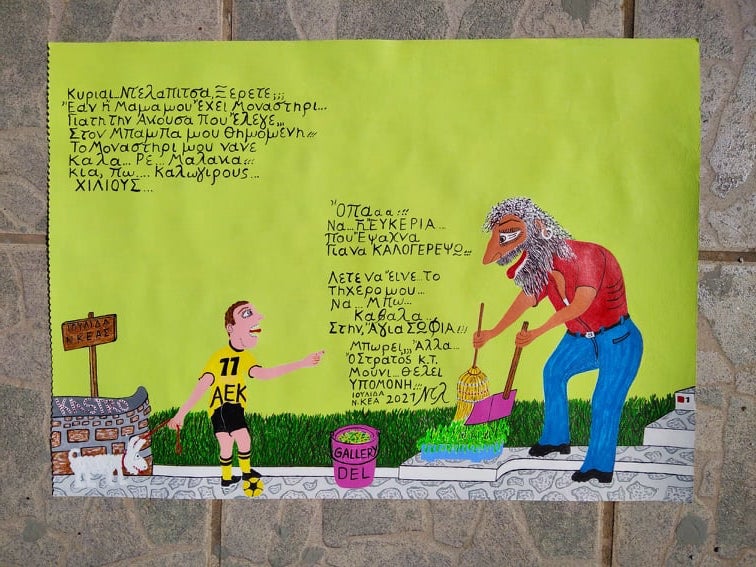 Κυριαι.. Ντελαπιτσα, Ξερετε;;;
Ἐαν ἡ Μαμα μου Ἐχει Μοναστηρι...
Γιατη την Ακουσα που Ἐλεγε,,,
Στον Μπαμπα μου Θημομενη!!!
Το Μοναστηρι μου νανε
Καλα... Ρε... Μαλακα!!!
κια, πω.... Καλωγιρους...
ΧΙΛΙΟΥΣ...
Ὀπααα!!!
Να... ἡ ΕΥΚΕΡΙΑ...
που Ἐψαχνα
Γιανα ΚΑΛΟΓΕΡΕΨΩ!!!
Λετε να Ἐινε.. το
τηχερο μου...
Να... Μπω...
Καβαλα...
Στην, Ἀγια ΣΩΦΙΑ!!!
Μπωρει,,, Ἀλλα...
Ὁ Στρατος κ.τ.
Μουνι... Θελει
ΥΠΟΜΟΝΗ!!!
ΙΟΥΛΙΔΑ
Ν. ΚΕΑ 2021 Ντλ
ΙΟΥΛΙΔΑ
Ν.ΚΕΑΣ
KASTRO
11
ΑΕΚ
GALLERY
DEL
1